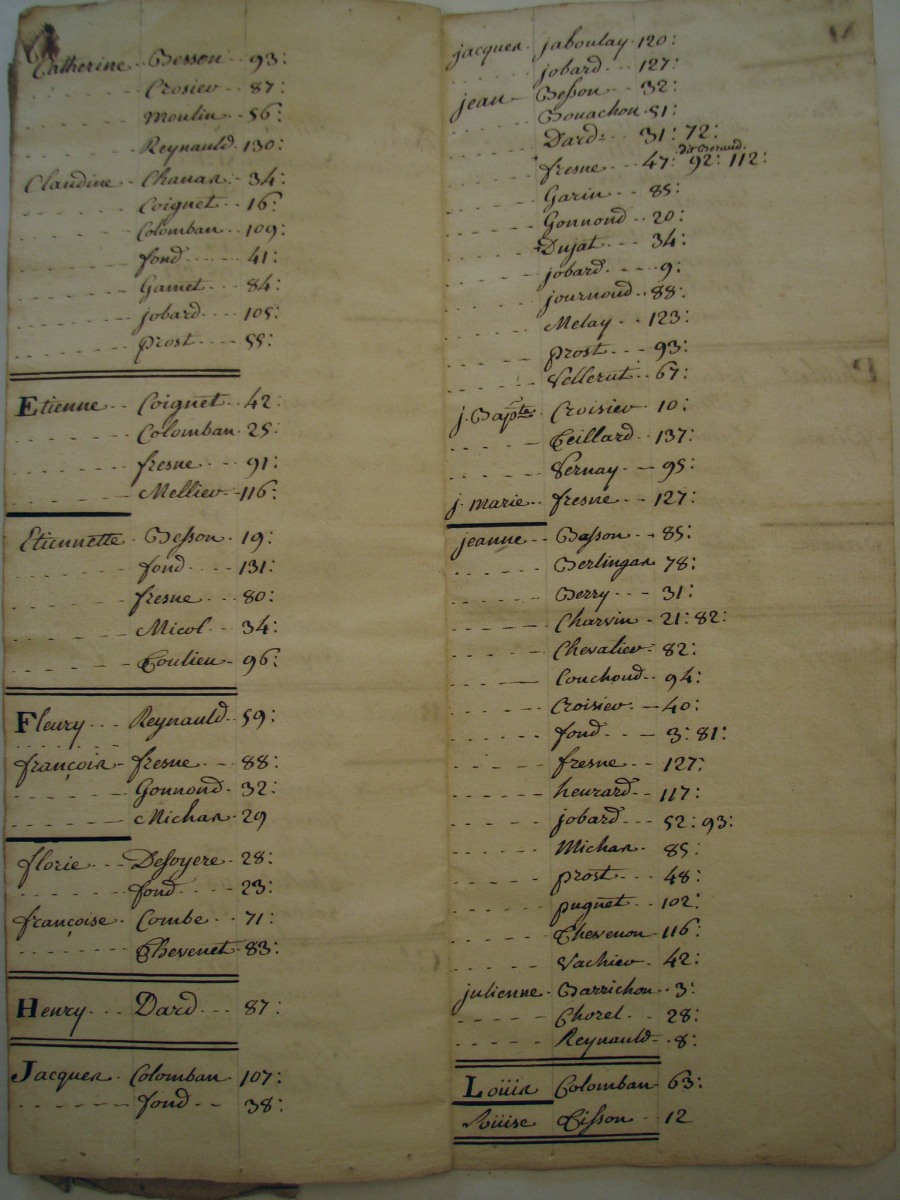 Catherine Besson 93:
Crosier 87:
Moulin 56:
Reynauld 130:
Claudine Chanas 34:
Coignet 16:
Colomban 109:
fond 41:
Gamet 84:
jobard 105:
prost 55:
Etienne Coignet 42:
Colomban 25:
fresne 91:
Mellier 116:
Etiennette Besson 19:
fond 131:
fresne 80:
Micol 34:
Toulieu 96:
Fleury Reynauld 59:
françois fresne 88:
Gonnond 32:
Michas 29
florie Desoyere 28:
fond 23:
françoise Combe 71:
Thevenet 83:
Henry Dard 87:
Jacques Colomban 107:
fond 38:
jacques jaboulay 120:
jobard 127:
jean Besson 32:
Bouachon 51:
Dard 31: 72:
fresne 47: 92: 112:
Garin 85:
Gonnond 20:
Dujat 34:
jobard 9:
journoud 88:
Melay 123:
prost 93:
Vellerut 67:
j. Bapte Croisier 10:
Teillard 137:
Vernay 95:
j. marie fresne 127:
jeanne Basson 85:
Berlingas 78:
Berry 31:
Charvin 21: 82:
Chevalier 82:
Couchoud 94:
Croisier 40:
fond 3: 81:
fresne 127:
heurard 117:
jobard 52: 93:
Michas 85:
prost 48:
pugnet 102:
Thevenon 116:
Vachier 42:
julienne Barrichon 3:
Thorel 28:
Reynauld 8:
Loüis Colomban 63:
Loüise Tisson 12